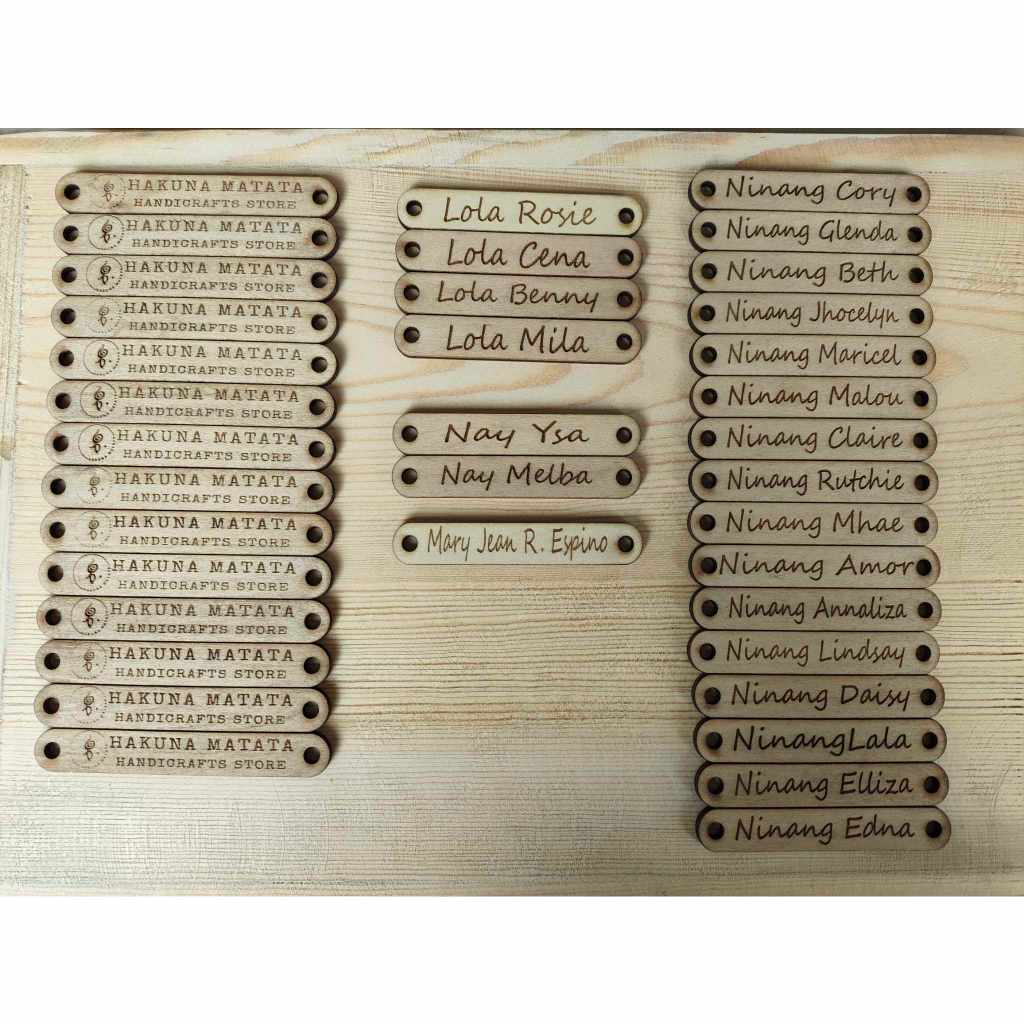 HAKUNA MATATA
HANDICRAFTS STORE
HAKUNA MATATA
HANDICRAFTS STORE
HAKUNA MATATA
HANDICRAFTS STORE
HAKUNA MATATA
HANDICRAFTS STORE
HAKUNA MATATA
HANDICRAFTS STORE
HAKUNA MATATA
HANDICRAFTS STORE
HAKUNA MATATA
HANDICRAFTS STORE
HAKUNA MATATA
HANDICRAFTS STORE
HAKUNA MATATA
HANDICRAFTS STORE
HAKUNA MATATA
HANDICRAFTS STORE
HAKUNA MATATA
HANDICRAFTS STORE
HAKUNA MATATA
HANDICRAFTS STORE
HAKUNA MATATA
HANDICRAFTS STORE
HAKUNA MATATA
HANDICRAFTS STORE
Lola Rosie
Lola Cena
Lola Benny
Lola Mila
Nay Ysa
Nay Melba
Mary Jean R. Espino
Ninang Cory
Ninang Glenda
Ninang Beth
Ninang Jhocelyn
Ninang Maricel
Ninang Malou
Ninang Claire
Ninang Rutchie
Ninang Mhae
Ninang Amor
Ninang Annaliza
Ninang Lindsay
Ninang Daisy
NinangLala
Ninang Elliza
Ninang Edna